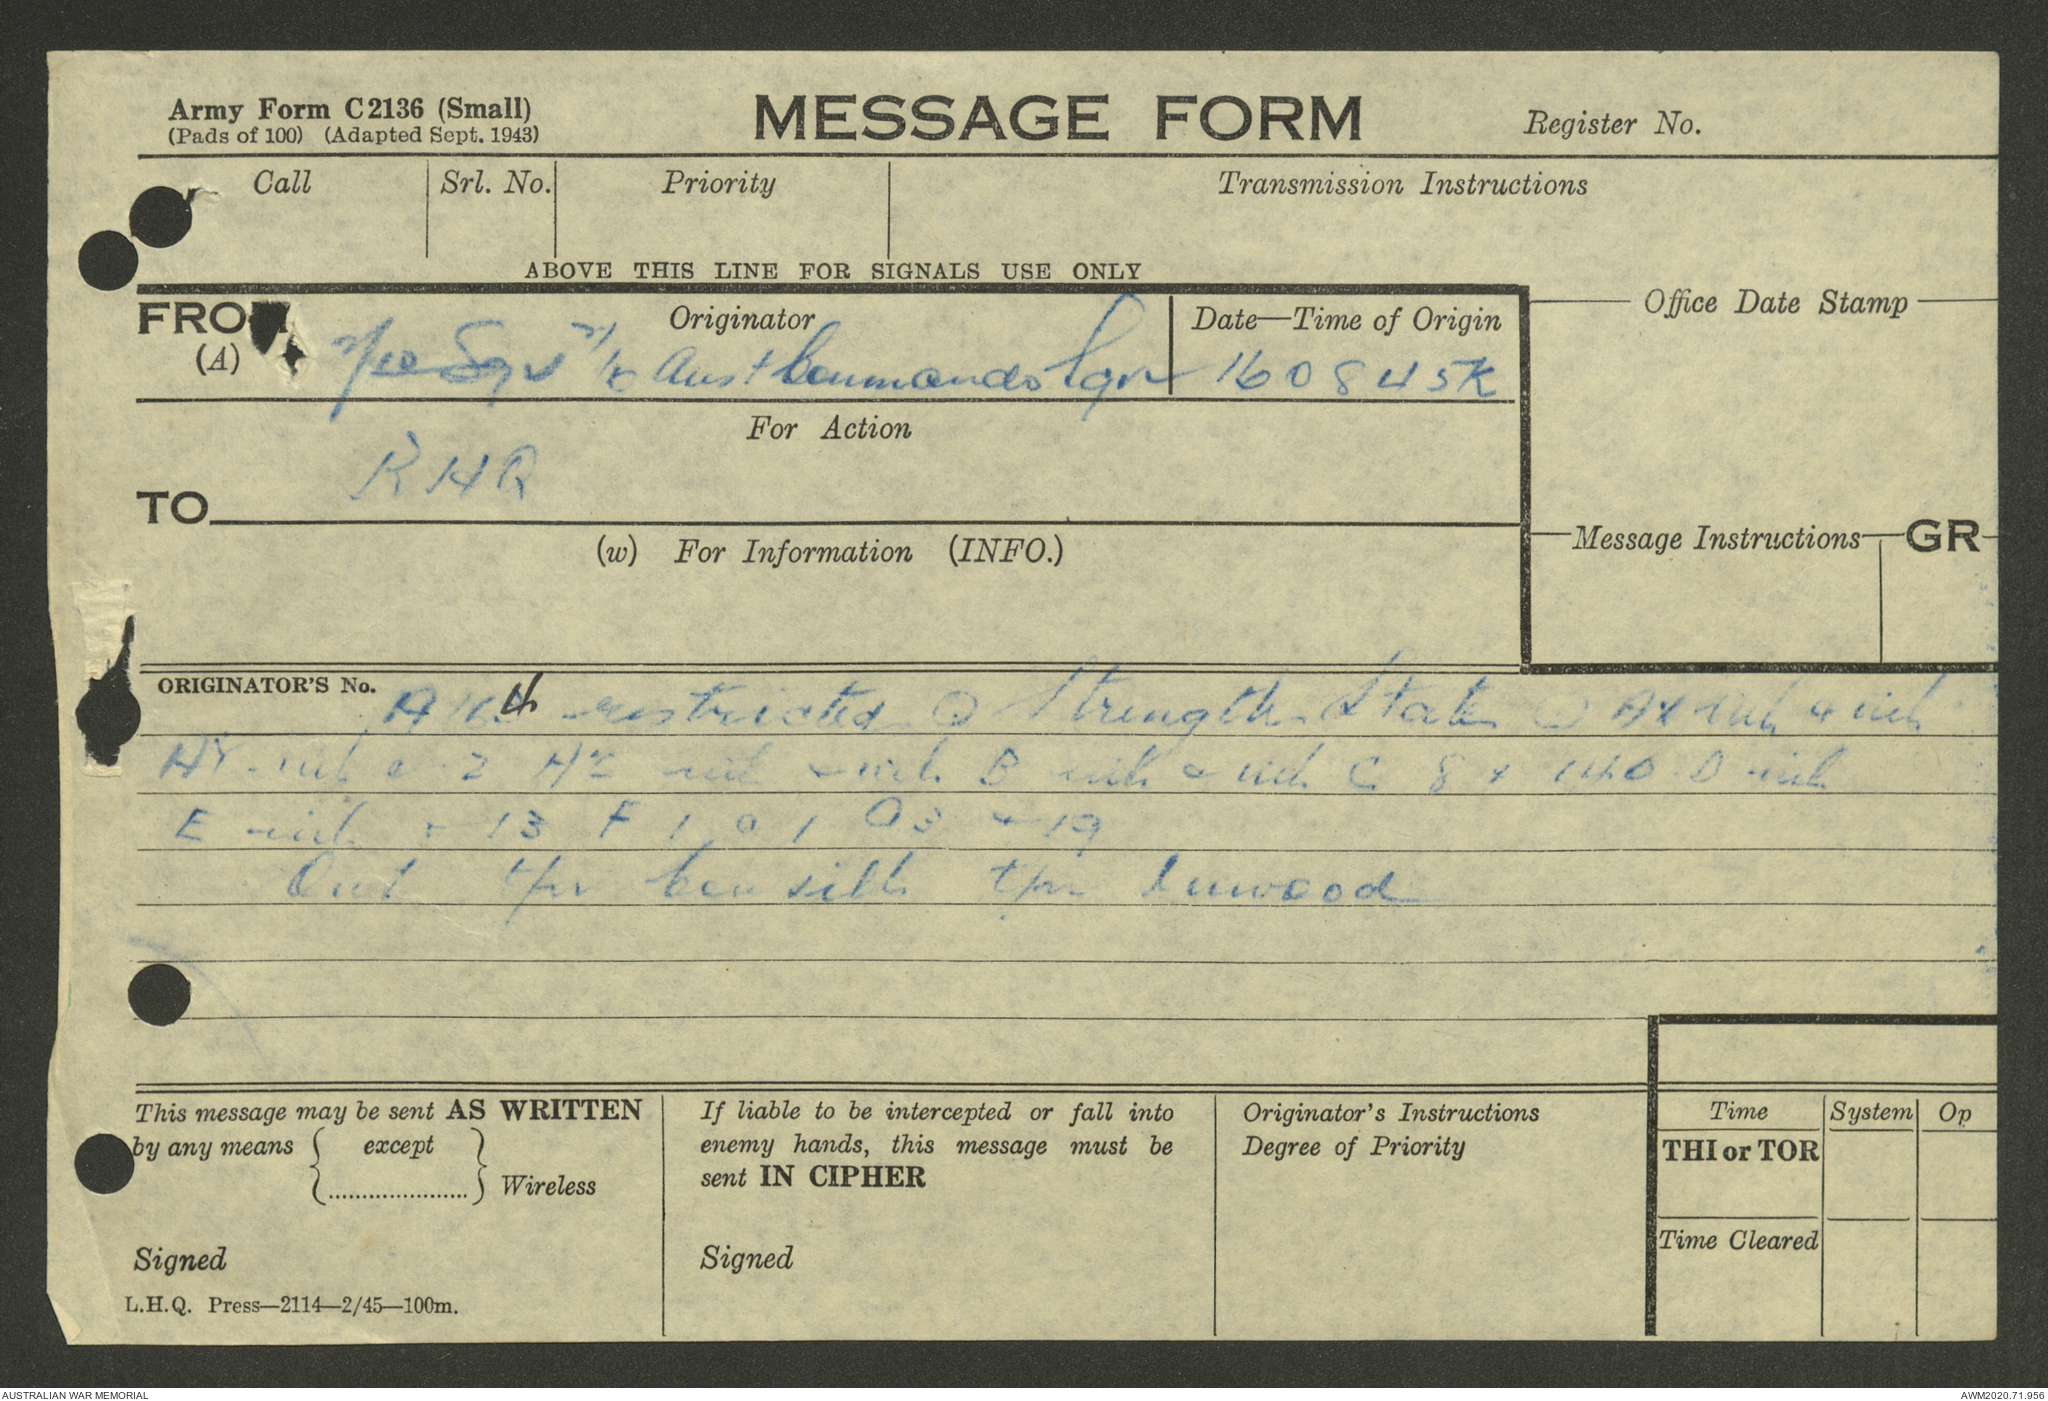 Army Form C2136 (Small)
(Pads of 100) (Adapted Sept. 1943)
MESSAGE FORM
Register No.
Call
Srl. No.
Priority
Transmission Instructions
ABOVE THIS LINE FOR SIGNALS USE ONLY
FROM
(A)
Originator
Date—Time of Origin
Office Date Stamp
Aust Commando Sqn
160845K
For Action
RHQ
TO
(w) For Information (INFO.)
Message Instructions
GR
ORIGINATOR'S No.
restricted Strength State AX nil & nil
AY nil & 2 AZ nil & nil B nil & nil C 8 & 140 D nil
E nil & 13 F 1 0 1 & 19
Out tpr tpr Inwood
This message may be sent AS WRITTEN
by any means { except
.....................} Wireless
Signed
L.H.Q. Press—2114—2/45—100m.
If liable to be intercepted or fall into
enemy hands, this message must be
sent IN CIPHER
Signed
Originator's Instructions
Degree of Priority
Time
System
Op
THI or TOR
Time Cleared
AUSTRALIAN WAR MEMORIAL
AWM2020.71.956